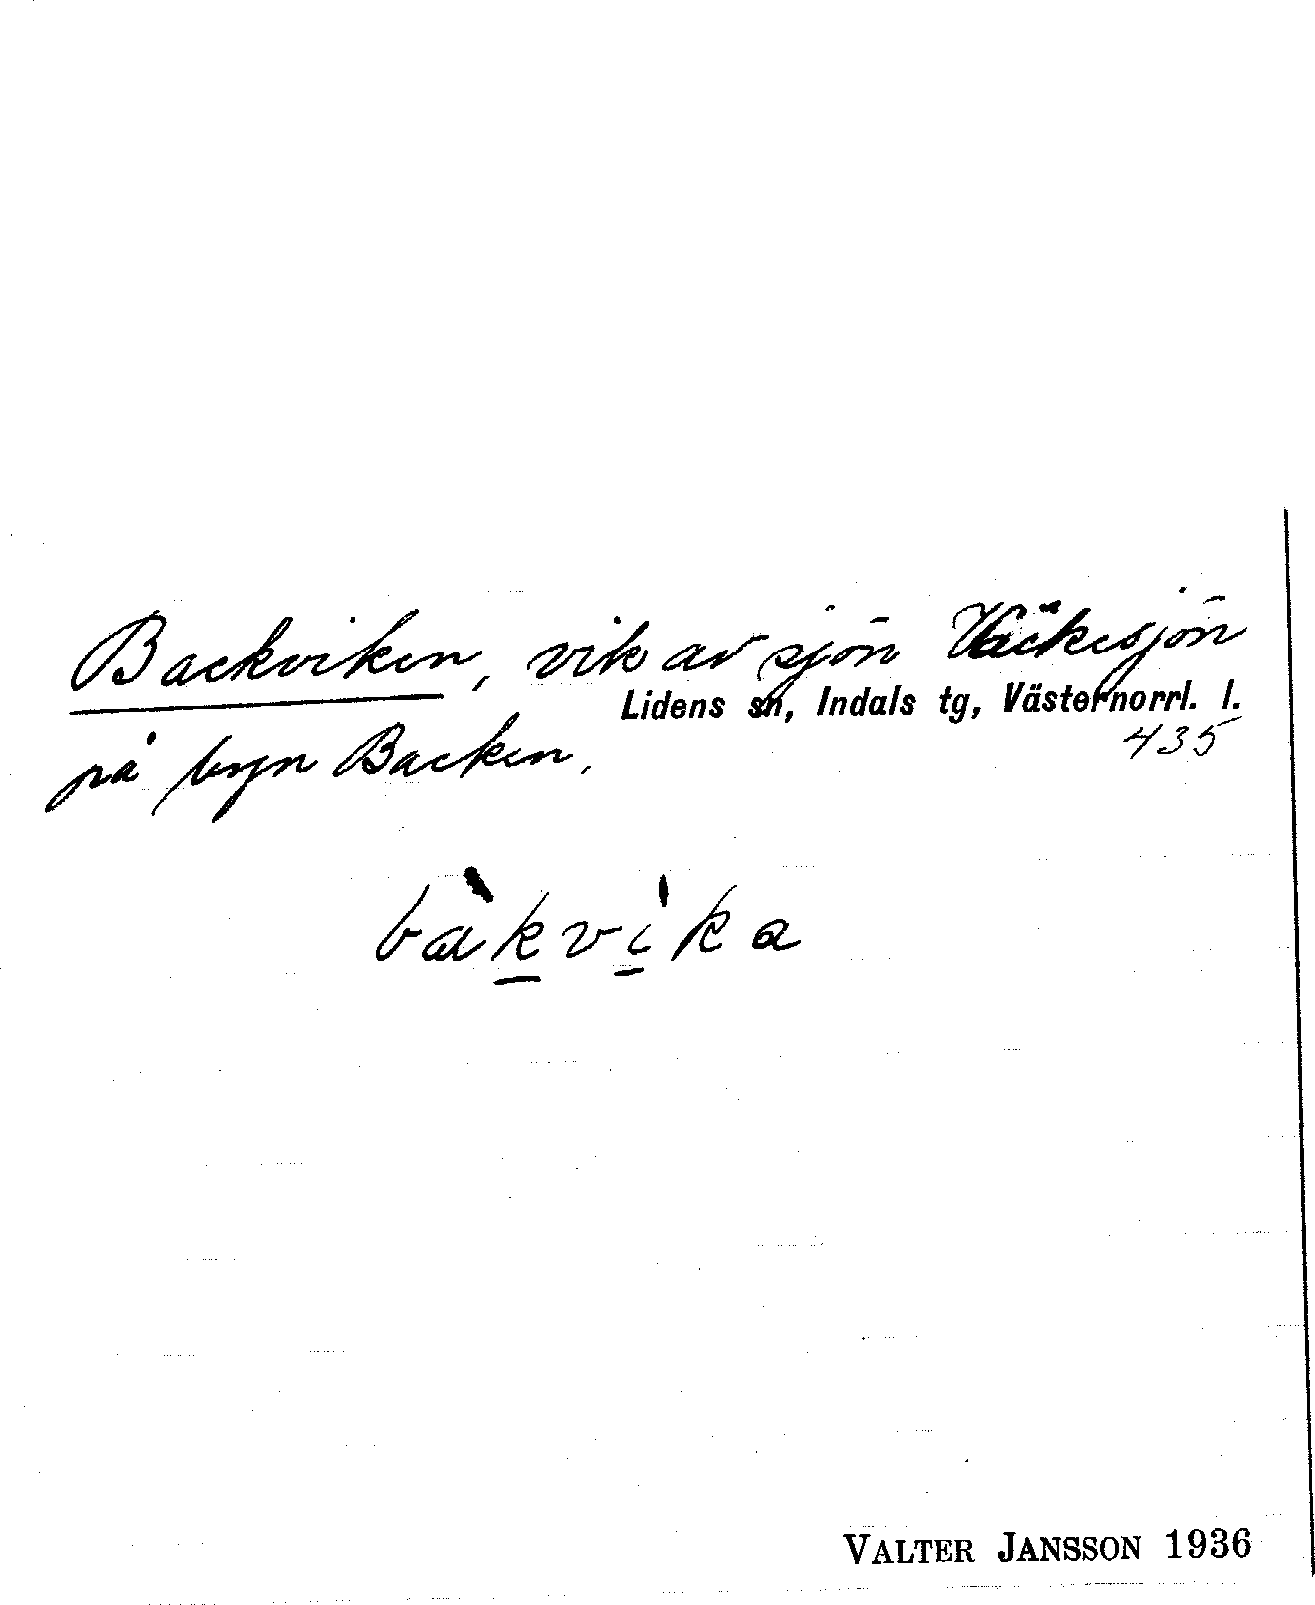 Backviken, vik av sjön Väckesjön
Lidens sn, Indals tg, Västernorrl. l.
435
på byn Backen.
bàkvìka
VALTER JANSSON 1936